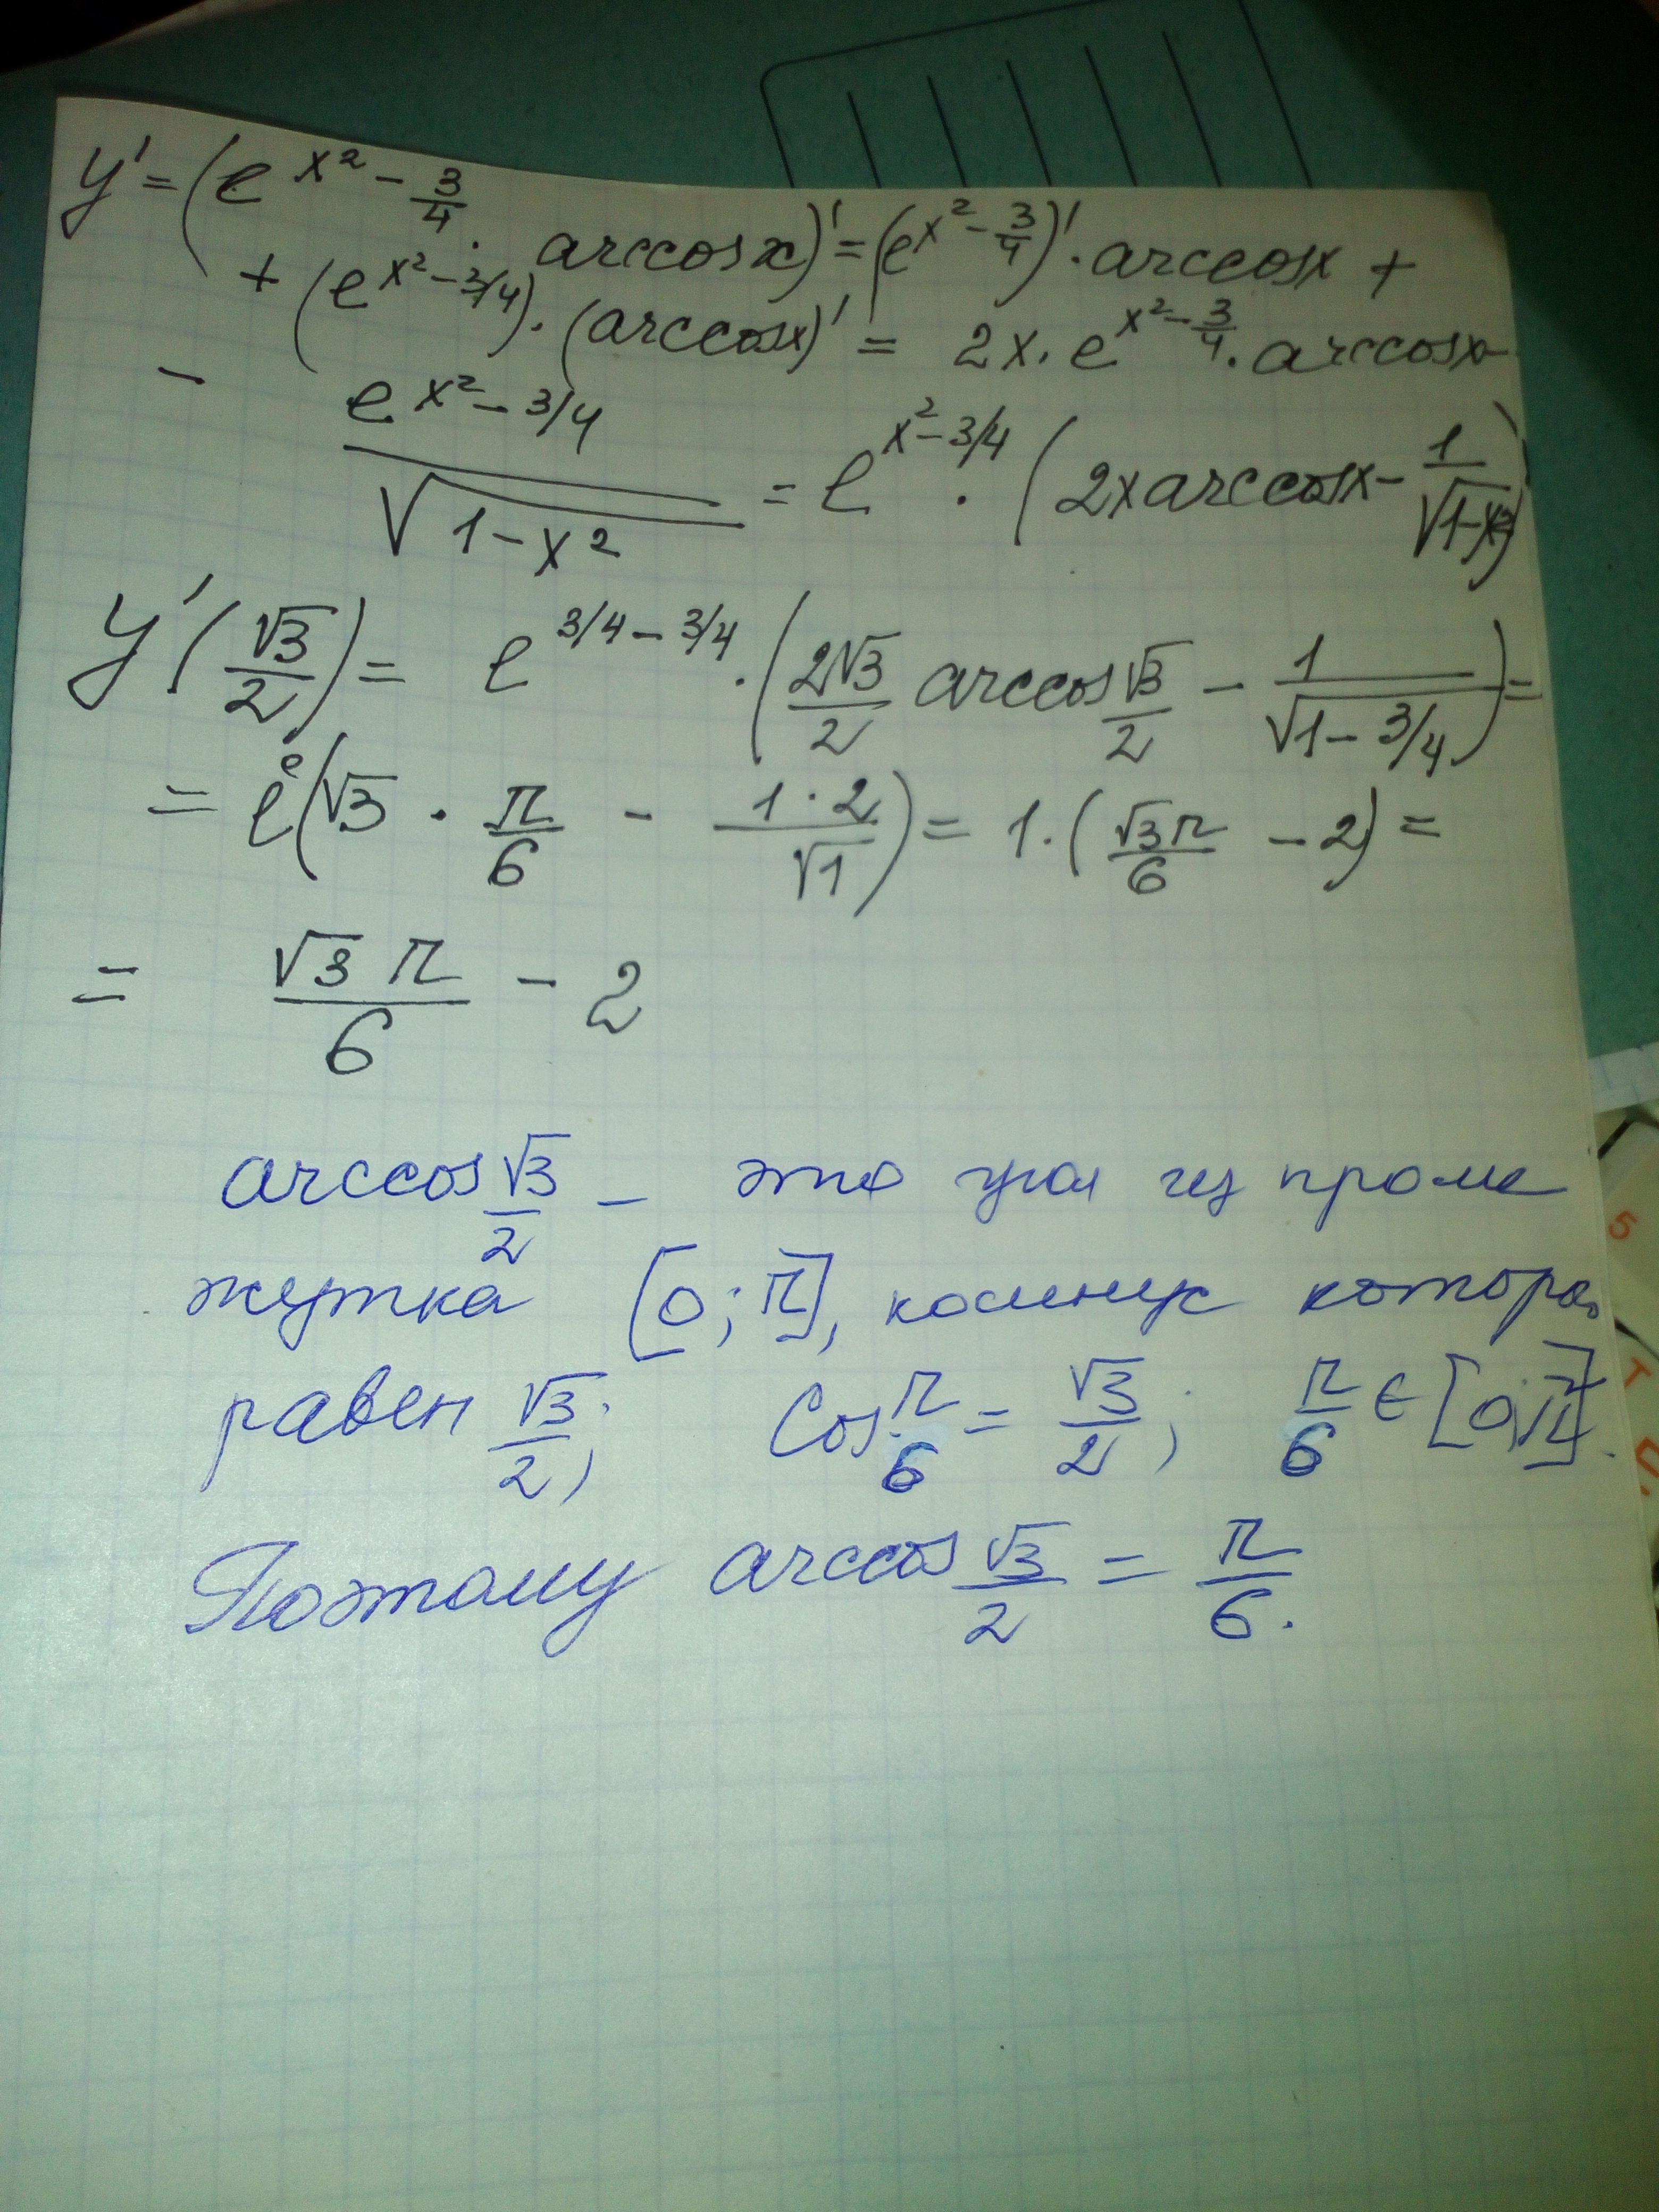 y' = (e^{x² - 3/4} · arccos x)' = (e^{x² - 3/4})' · arccos x +
+ (e^{x² - 3/4}) · (arccos x)' = 2x · e^{x² - 3/4} · arccos x -
- e^{x² - 3/4} / √(1 - x²) = e^{x² - 3/4} · (2x arccos x - 1/√(1 - x²))
y'(√3/2) = e^{3/4 - 3/4} · (2√3/2 arccos √3/2 - 1/√(1 - 3/4)) =
= e^0 (√3 · π/6 - 1·2/√1) = 1 · (√3π/6 - 2) =
= √3π/6 - 2
arccos √3/2 - это угол из проме
жутка [0; π], косинус которо
равен √3/2; cos π/6 = √3/2; π/6 ∈ [0; π].
Поэтому arccos √3/2 = π/6.
5
T